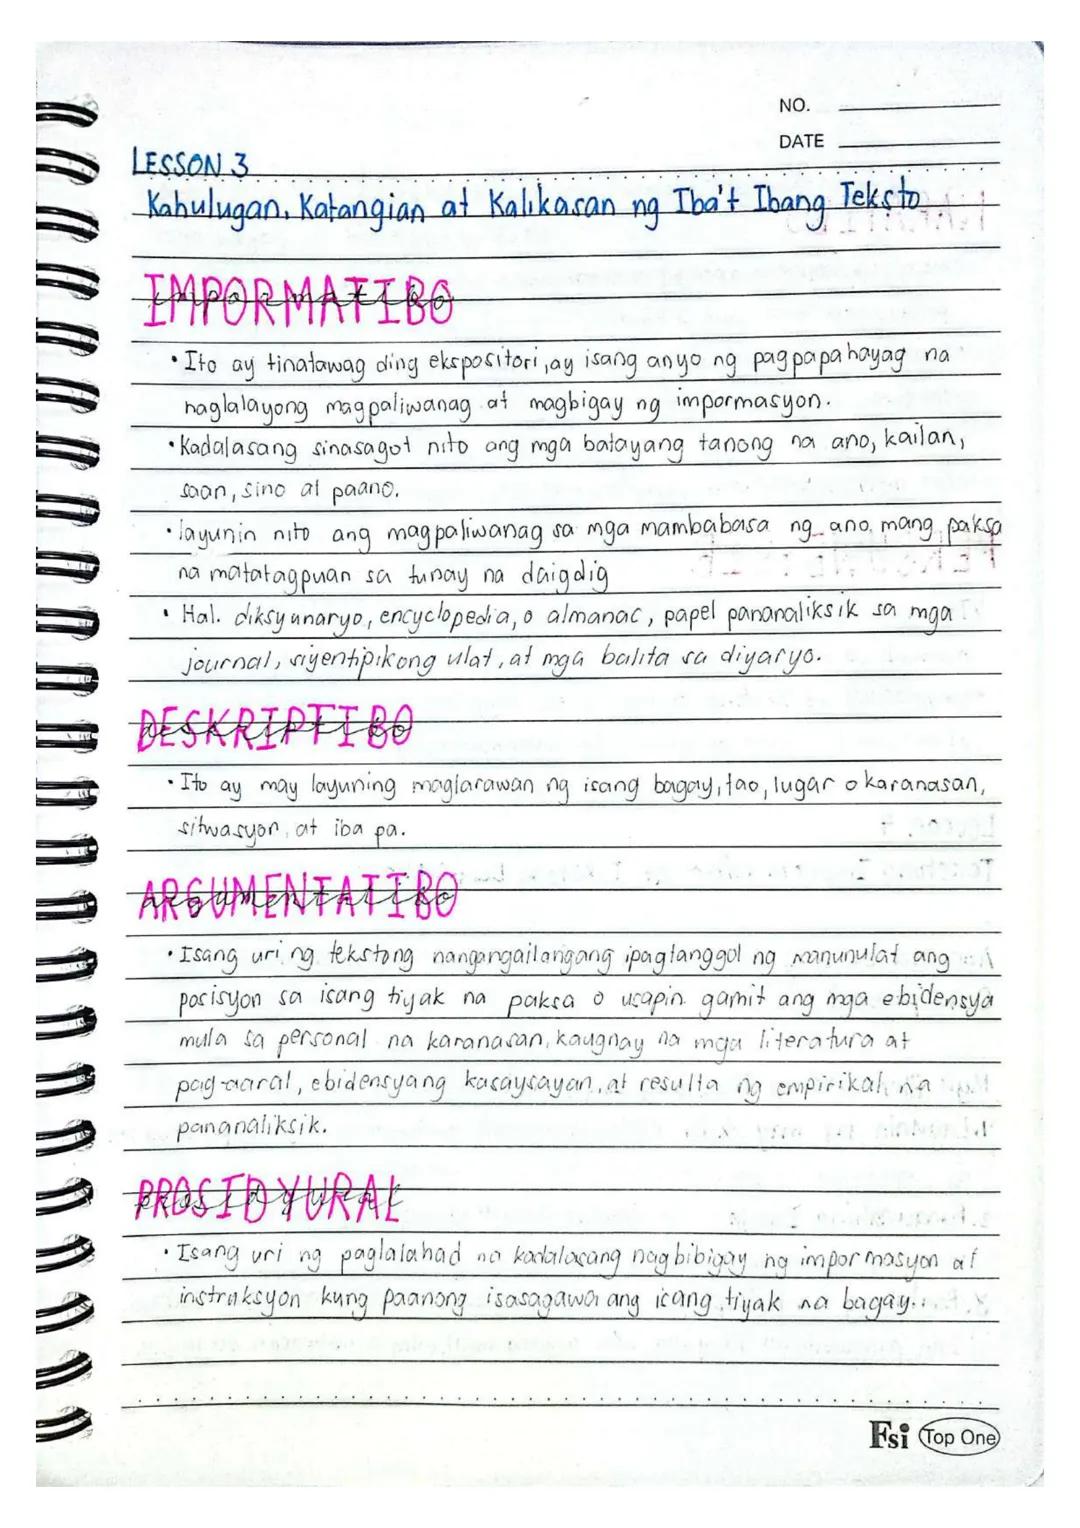 NO.
DATE
LESSON 3
Kahulugan, Katangian at Kalikasan ng Iba't Ibang Teksto
IMPORMATIBO
• Ito ay tinatawag ding ekspositori, ay isang anyo ng pagpapahayag na
naglalayong magpaliwanag at magbigay ng impormasyon.
• Kadalasang sinasagot nito ang mga batayang tanong na ano, kailan,
saan, sino at paano.
• layunin nito ang magpaliwanag sa mga mambabasa ng ano mang paksa
na matatagpuan sa tunay na daigdig
• Hal. diksyunaryo, encyclopedia, o almanac, papel pananaliksik sa mga
journal, siyentipikong ulat, at mga balita sa diyaryo.
DESKRIPTIBO
• Ito ay may layuning maglarawan ng isang bagay, tao, lugar o karanasan,
sitwasyon, at iba pa.
ARGUMENTATIBO
• Isang uri ng tekstong nangangailangang ipagtanggol ng manunulat ang
posisyon sa isang tiyak na paksa o usapin gamit ang mga ebidensya
mula sa personal na karanasan, kaugnay na mga literatura at
pag-aaral, ebidensyang kasaysayan, at resulta ng empirikal na
pananaliksik.
PROSIDYURAL
• Isang uri ng paglalahad na kadalasang nagbibigay ng impormasyon at
instruksyon kung paanong isasagawa ang isang tiyak na bagay.
Fsi Top One